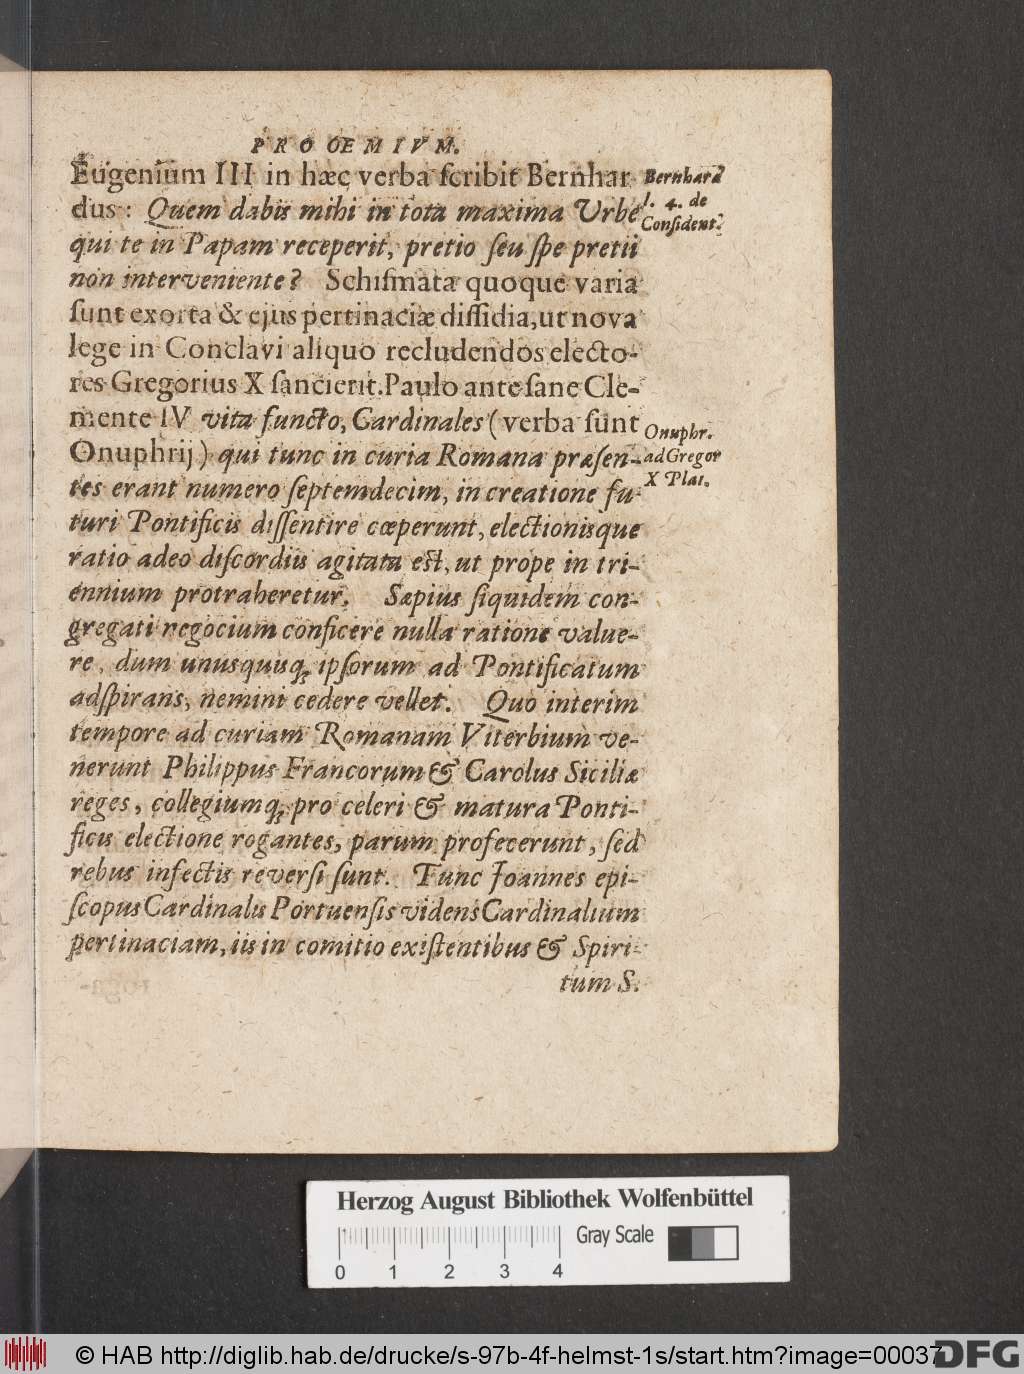 PROOEMIVM.
Eugenium III in hæc verba scribit Bernhar
dus: Quem dabis mihi in tota maxima Urbe
qui te in Papam receperit, pretio seu spe pretii
non interveniente? Schismata quoque varia
sunt exorta & ejus pertinaciæ dissidia, ut nova
lege in Conclavi aliquo recludendos electo-
res Gregorius X sancierit. Paulo ante sane Cle-
mente IV vita functo, Cardinales (verba sunt
Onuphrij) qui tunc in curia Romana præsen-
tes erant numero septemdecim, in creatione fu-
turi Pontificis dissentire cœperunt, electionisque
ratio adeo discordiis agitata est, ut prope in tri-
ennium protraheretur. Sæpius siquidem con-
gregati negocium conficere nulla ratione value-
re, dum unusquisq; ipsorum ad Pontificatum
adspirans, nemini cedere vellet. Quo interim
tempore ad curiam Romanam Viterbium ve-
nerunt Philippus Francorum & Carolus Siciliæ
reges, collegiumq; pro celeri & matura Ponti-
ficis electione rogantes, parum profecerunt, sed
rebus infectis reversi sunt. Tunc Joannes epi-
scopus Cardinalis Portuensis videns Cardinalium
pertinaciam, iis in comitio existentibus & Spiri-
tum S.
Bernhard
l. 4. de
Consident.
Onuphr.
ad Gregor
X Plat.
Herzog August Bibliothek Wolfenbüttel
Gray Scale
0 1 2 3 4
© HAB http://diglib.hab.de/drucke/s-97b-4f-helmst-1s/start.htm?image=00037
DFG